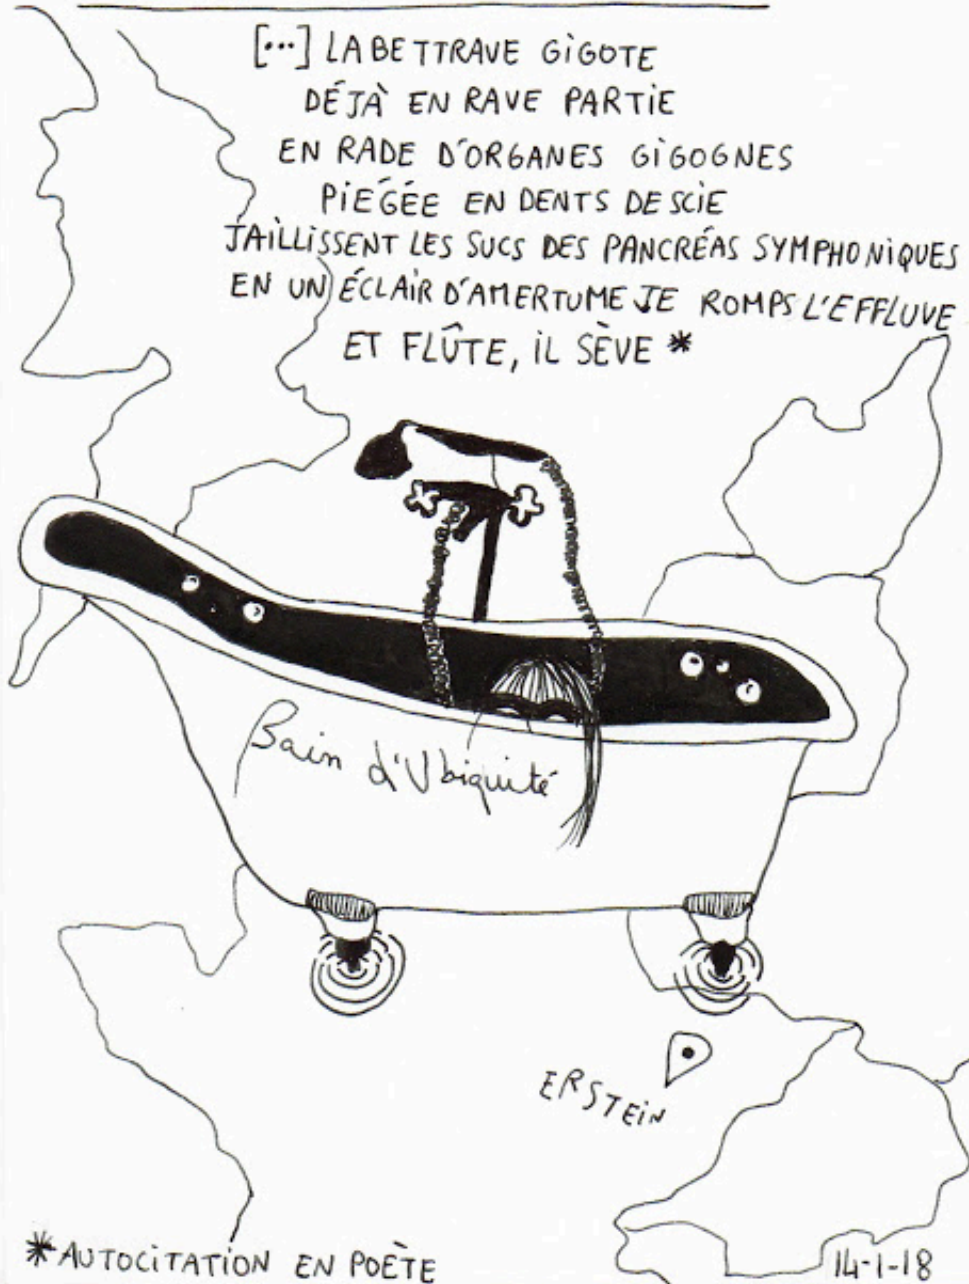 [...] LA BETTRAVE GIGOTE
DÉJÀ EN RAVE PARTIE
EN RADE D'ORGANES GIGOGNES
PIÉGÉE EN DENTS DE SCIE
JAILLISSENT LES SUCS DES PANCRÉAS SYMPHONIQUES
EN UN ÉCLAIR D'AMERTUME JE ROMPS L'EFFLUVE
ET FLÛTE, IL SÈVE *
Bain d'Ubiquité
ERSTEIN
* AUTOCITATION EN POÈTE
14-1-18